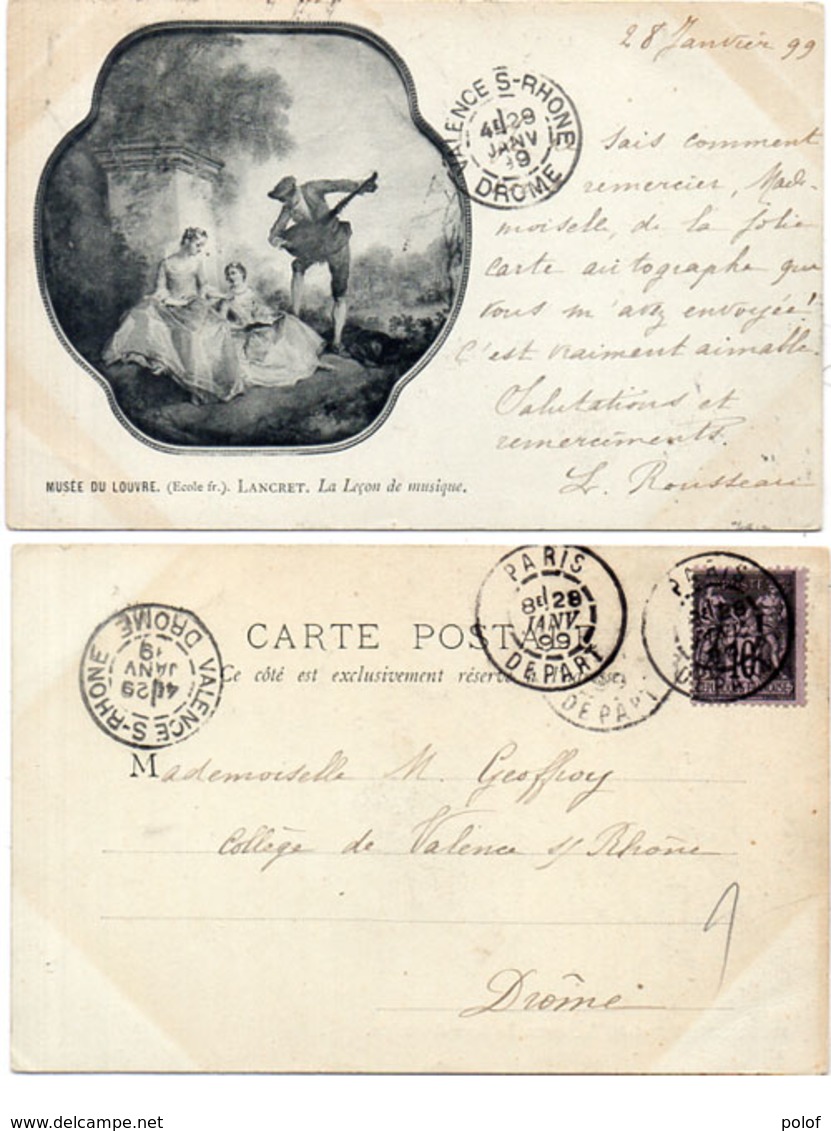 28 Janvier 99
VALENCE S-RHONE
4E 29
JANV
99
DROME
Sais comment
remercier, Made-
moiselle, de la jolie
carte autographe que
vous m'avez envoyée!
C'est vraiment aimable.
Salutations et
remerciements.
L. Rousseau
MUSÉE DU LOUVRE. (Ecole fr.). LANCRET. La Leçon de musique.
PARIS
8E 28
JANV
99
DEPART
PARIS
28
DEPART
10
VALENCE S-RHONE
4E 29
JANV
19
DROME
CARTE POSTALE
Ce côté est exclusivement réservé
Mademoiselle M. Geoffroy
Collège de Valence s/ Rhône
Drôme
polof